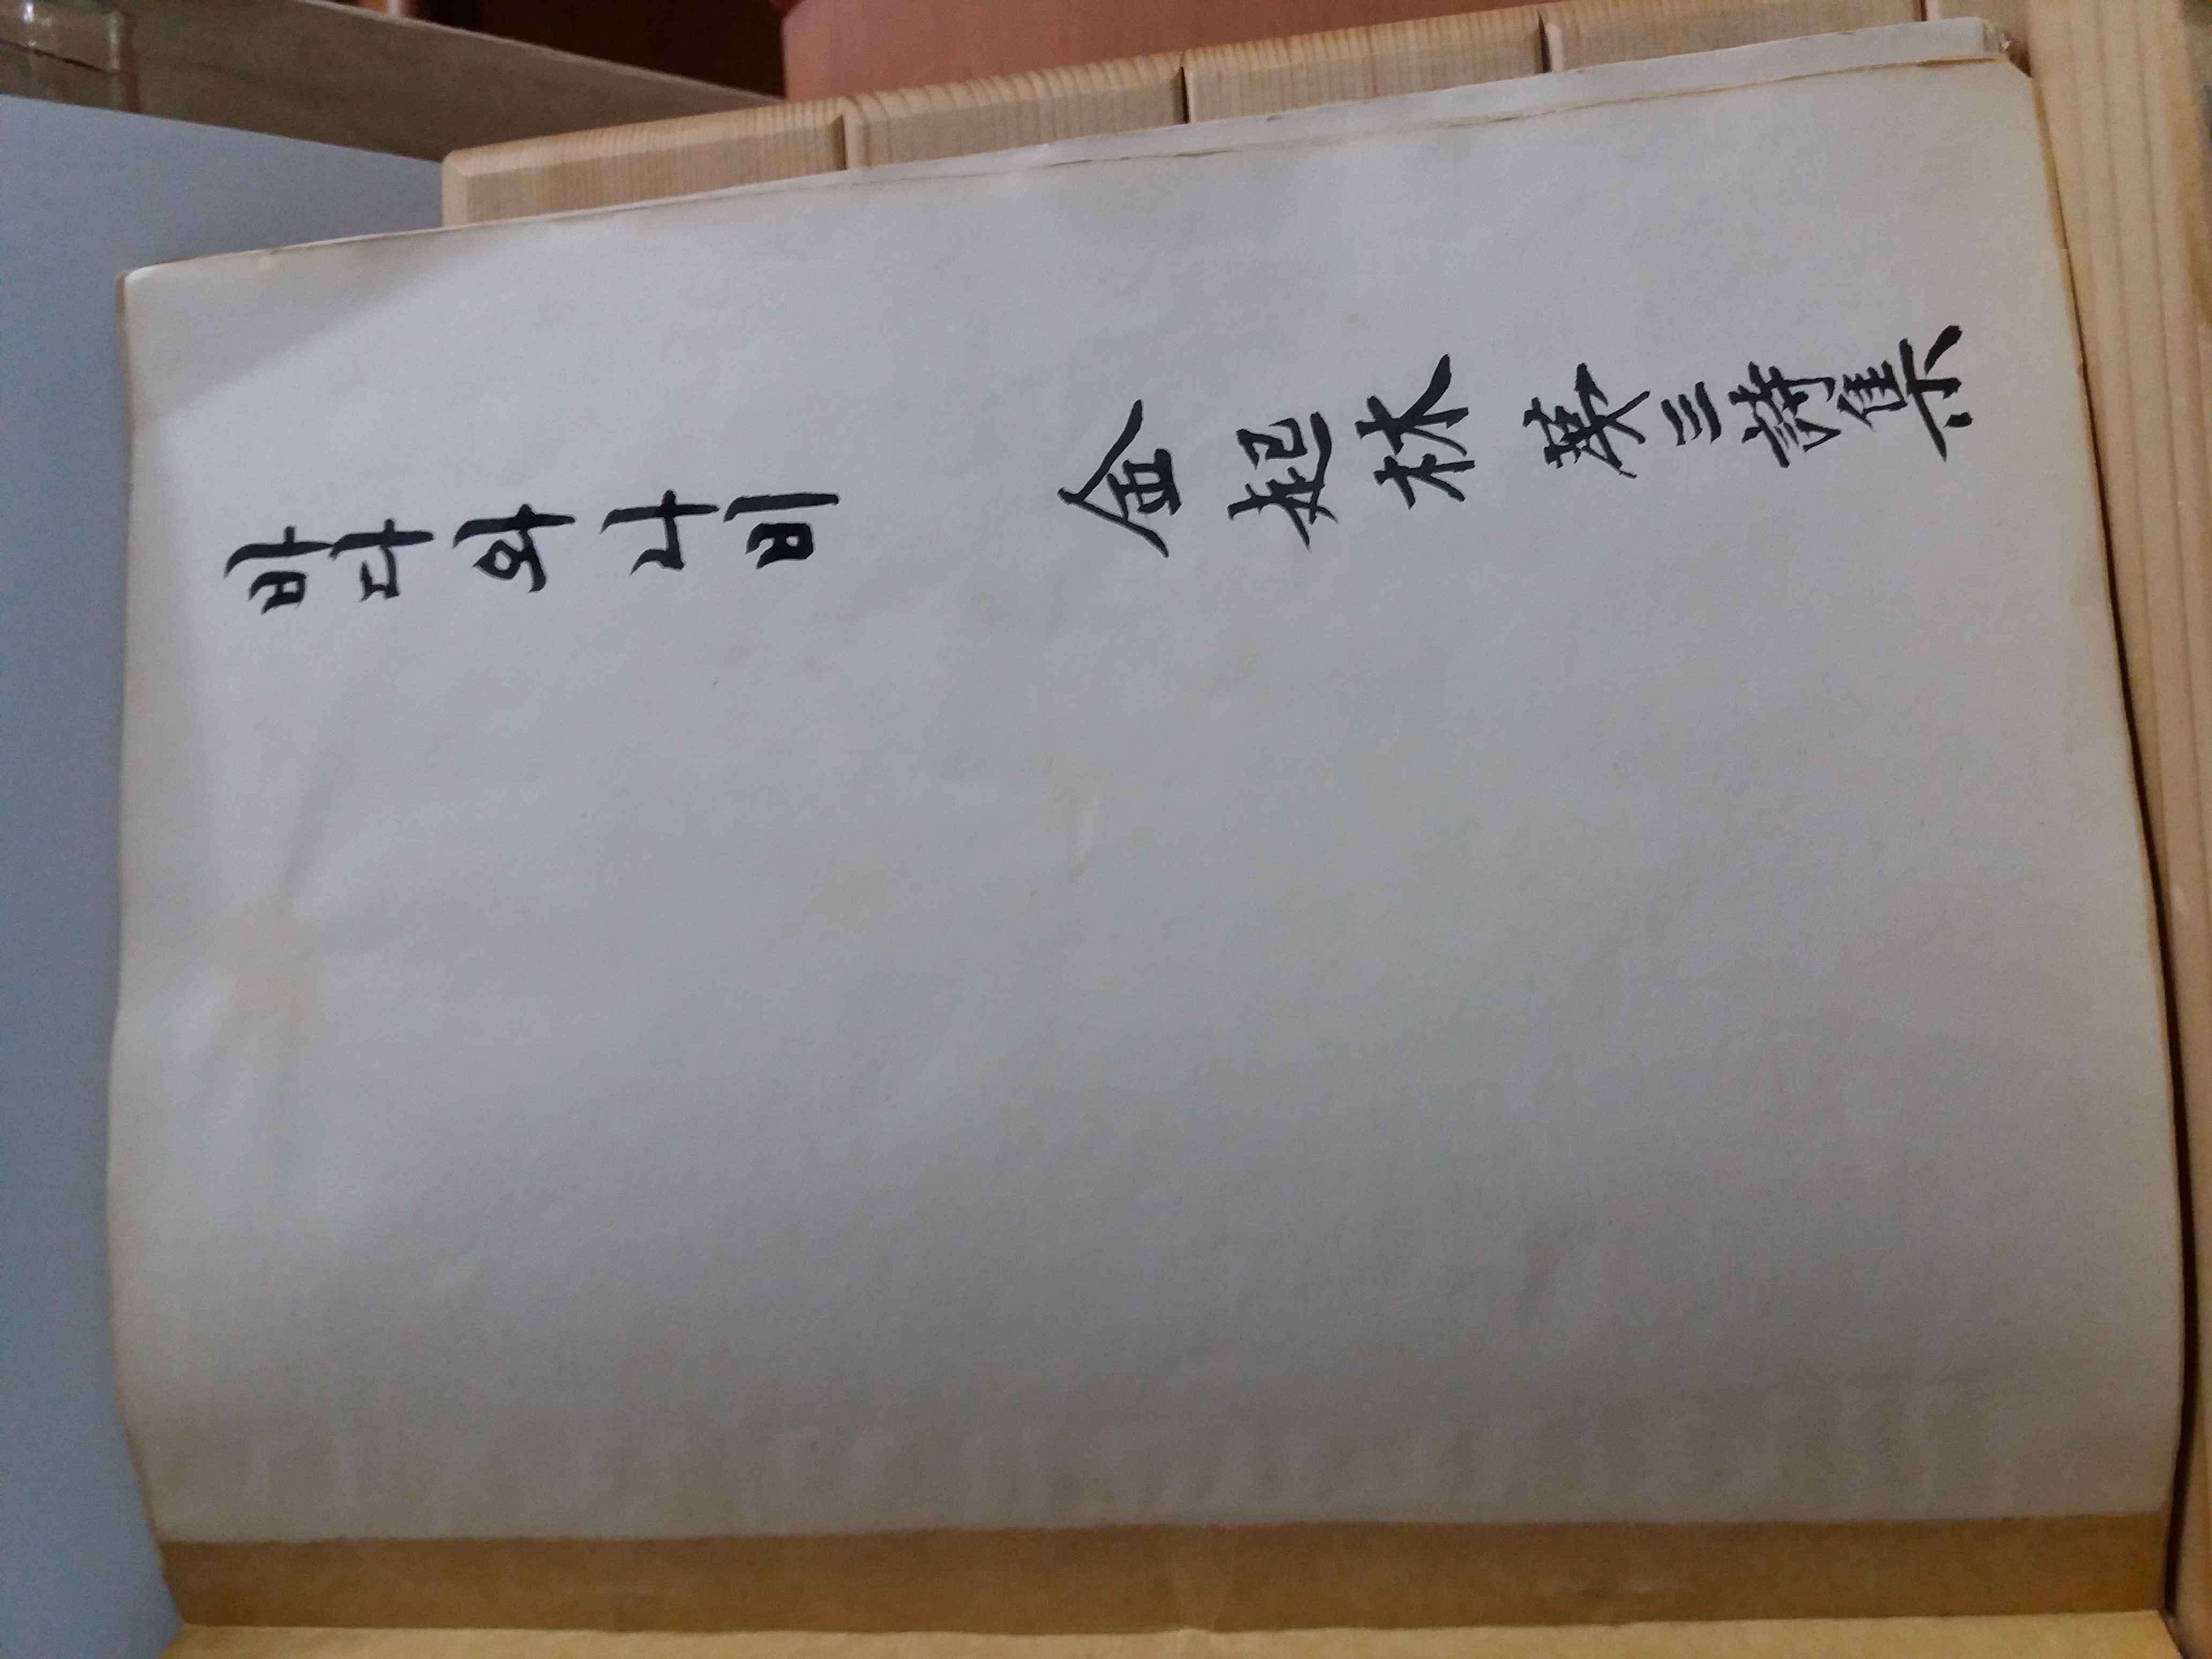 바다와나비
金起林 第三詩集